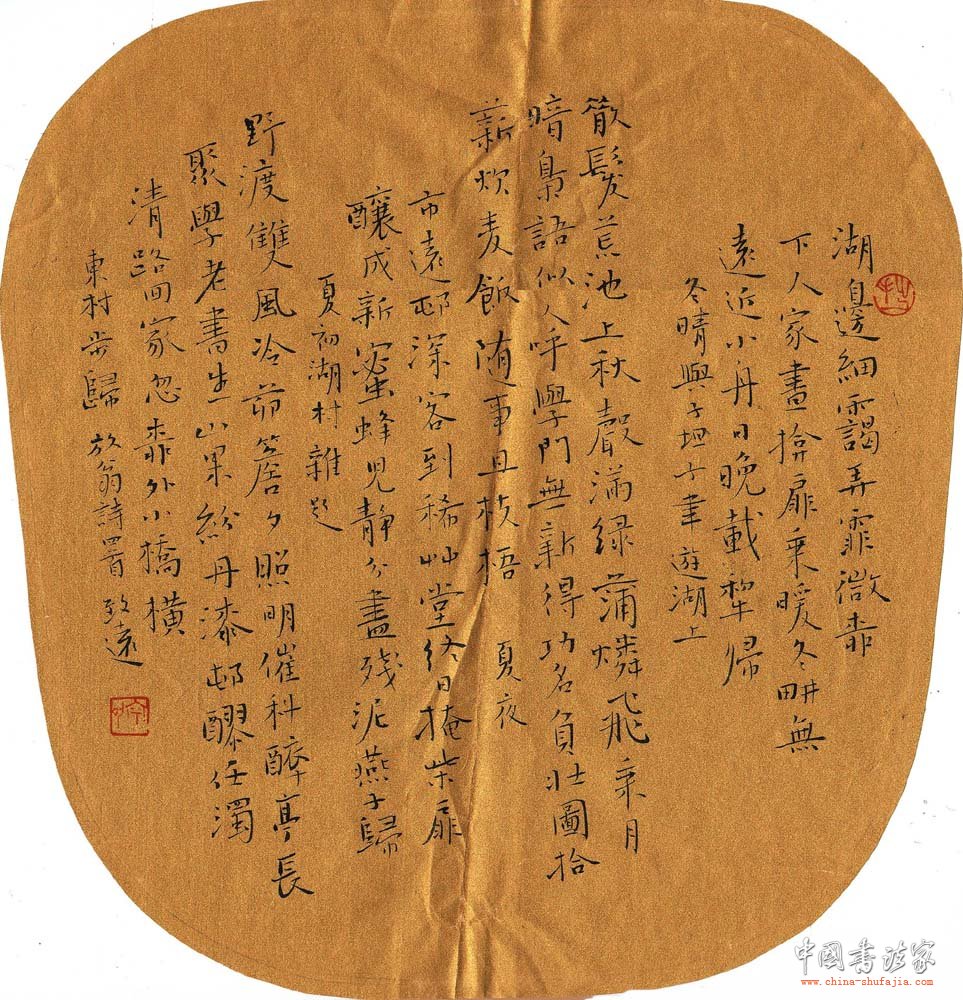 湖邊細靄弄霏微桺
下人家晝揜扉乘暖冬畊無
遠近小舟日晚載犂歸
冬晴與子坦子聿遊湖上
散髮荒池上秋聲滿緑蒲燐飛乘月
暗梟語似人呼學問無新得功名負壯圖拾
薪炊麦飯随事且枝梧 夏夜
市遠邨深客到稀艸堂終日掩柴扉
釀成新蜜蜂兒靜分盡残泥燕子歸
夏初湖村雜題
野渡雙風冷茆簷夕照明催科醉亭長
聚學老書生山果紛丹漆邨醪任濁
清路回家忽桺外小橋橫
東村步歸 放翁詩四首 致遠
中國書法家
www.china-shufajia.com